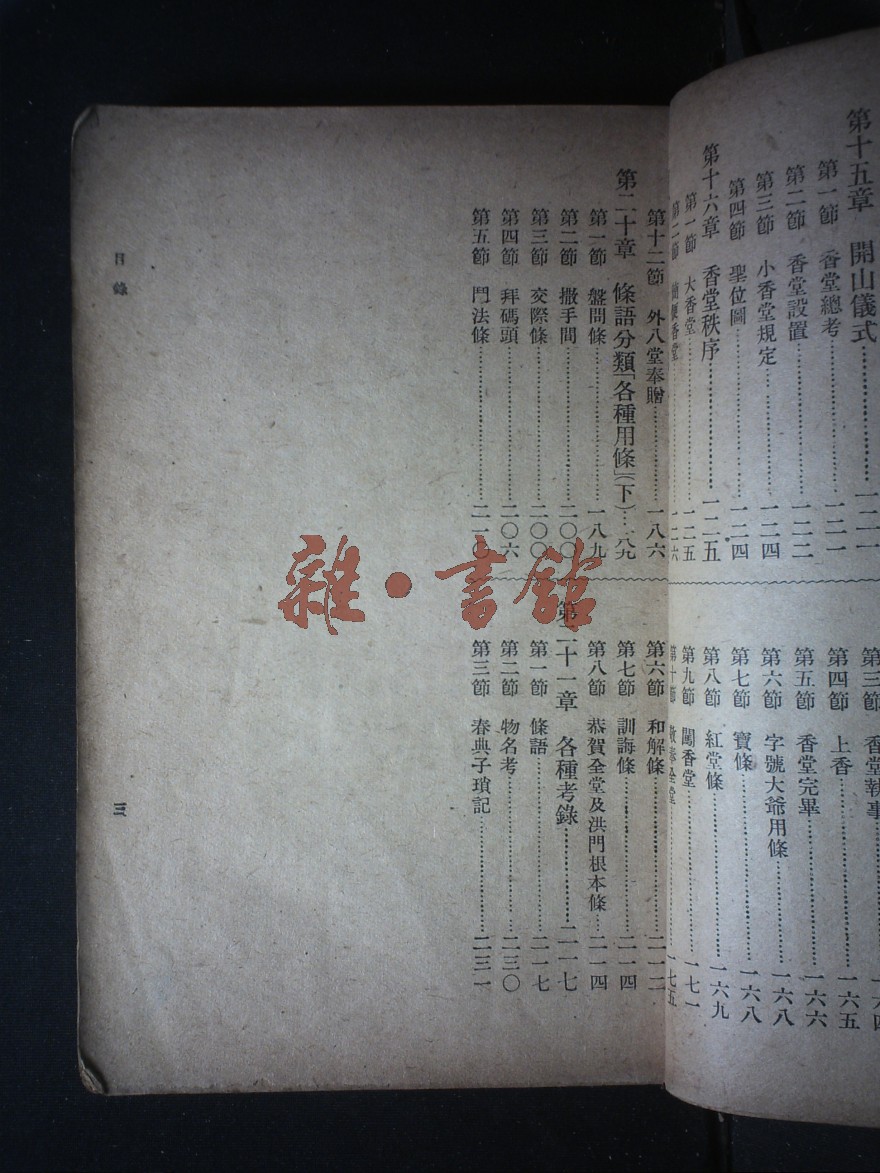 第十五章　開山儀式……一二一
第一節　香堂總考……一二一
第二節　香堂設置……一二二
第三節　小香堂規定……一二四
第四節　聖位圖……一二四
第十六章　香堂秩序……一二五
第一節　大香堂……一二五
第三節　香堂執事
第四節　上香……一六五
第五節　香堂完畢……一六六
第六節　字號大爺用條……一六八
第七節　寶條……一六八
第八節　紅堂條……一六九
第九節　闖香堂……一七一
第十二節　外八堂奉贈……一八六
第二十章　條語分類「各種用條」(下)…一八九
第一節　盤問條……一八九
第二節　撒手間……二〇〇
第三節　交際條……二〇〇
第四節　拜碼頭……二〇六
第五節　鬥法條……二一〇
第六節　和解條……二一二
第七節　訓誨條……二一四
第八節　恭賀全堂及洪門根本條…二一四
第二十一章　各種考錄……二一七
第一節　條語……二一七
第二節　物名考……二三〇
第三節　春典子瑣記……二三一
目錄
三
雜·書館